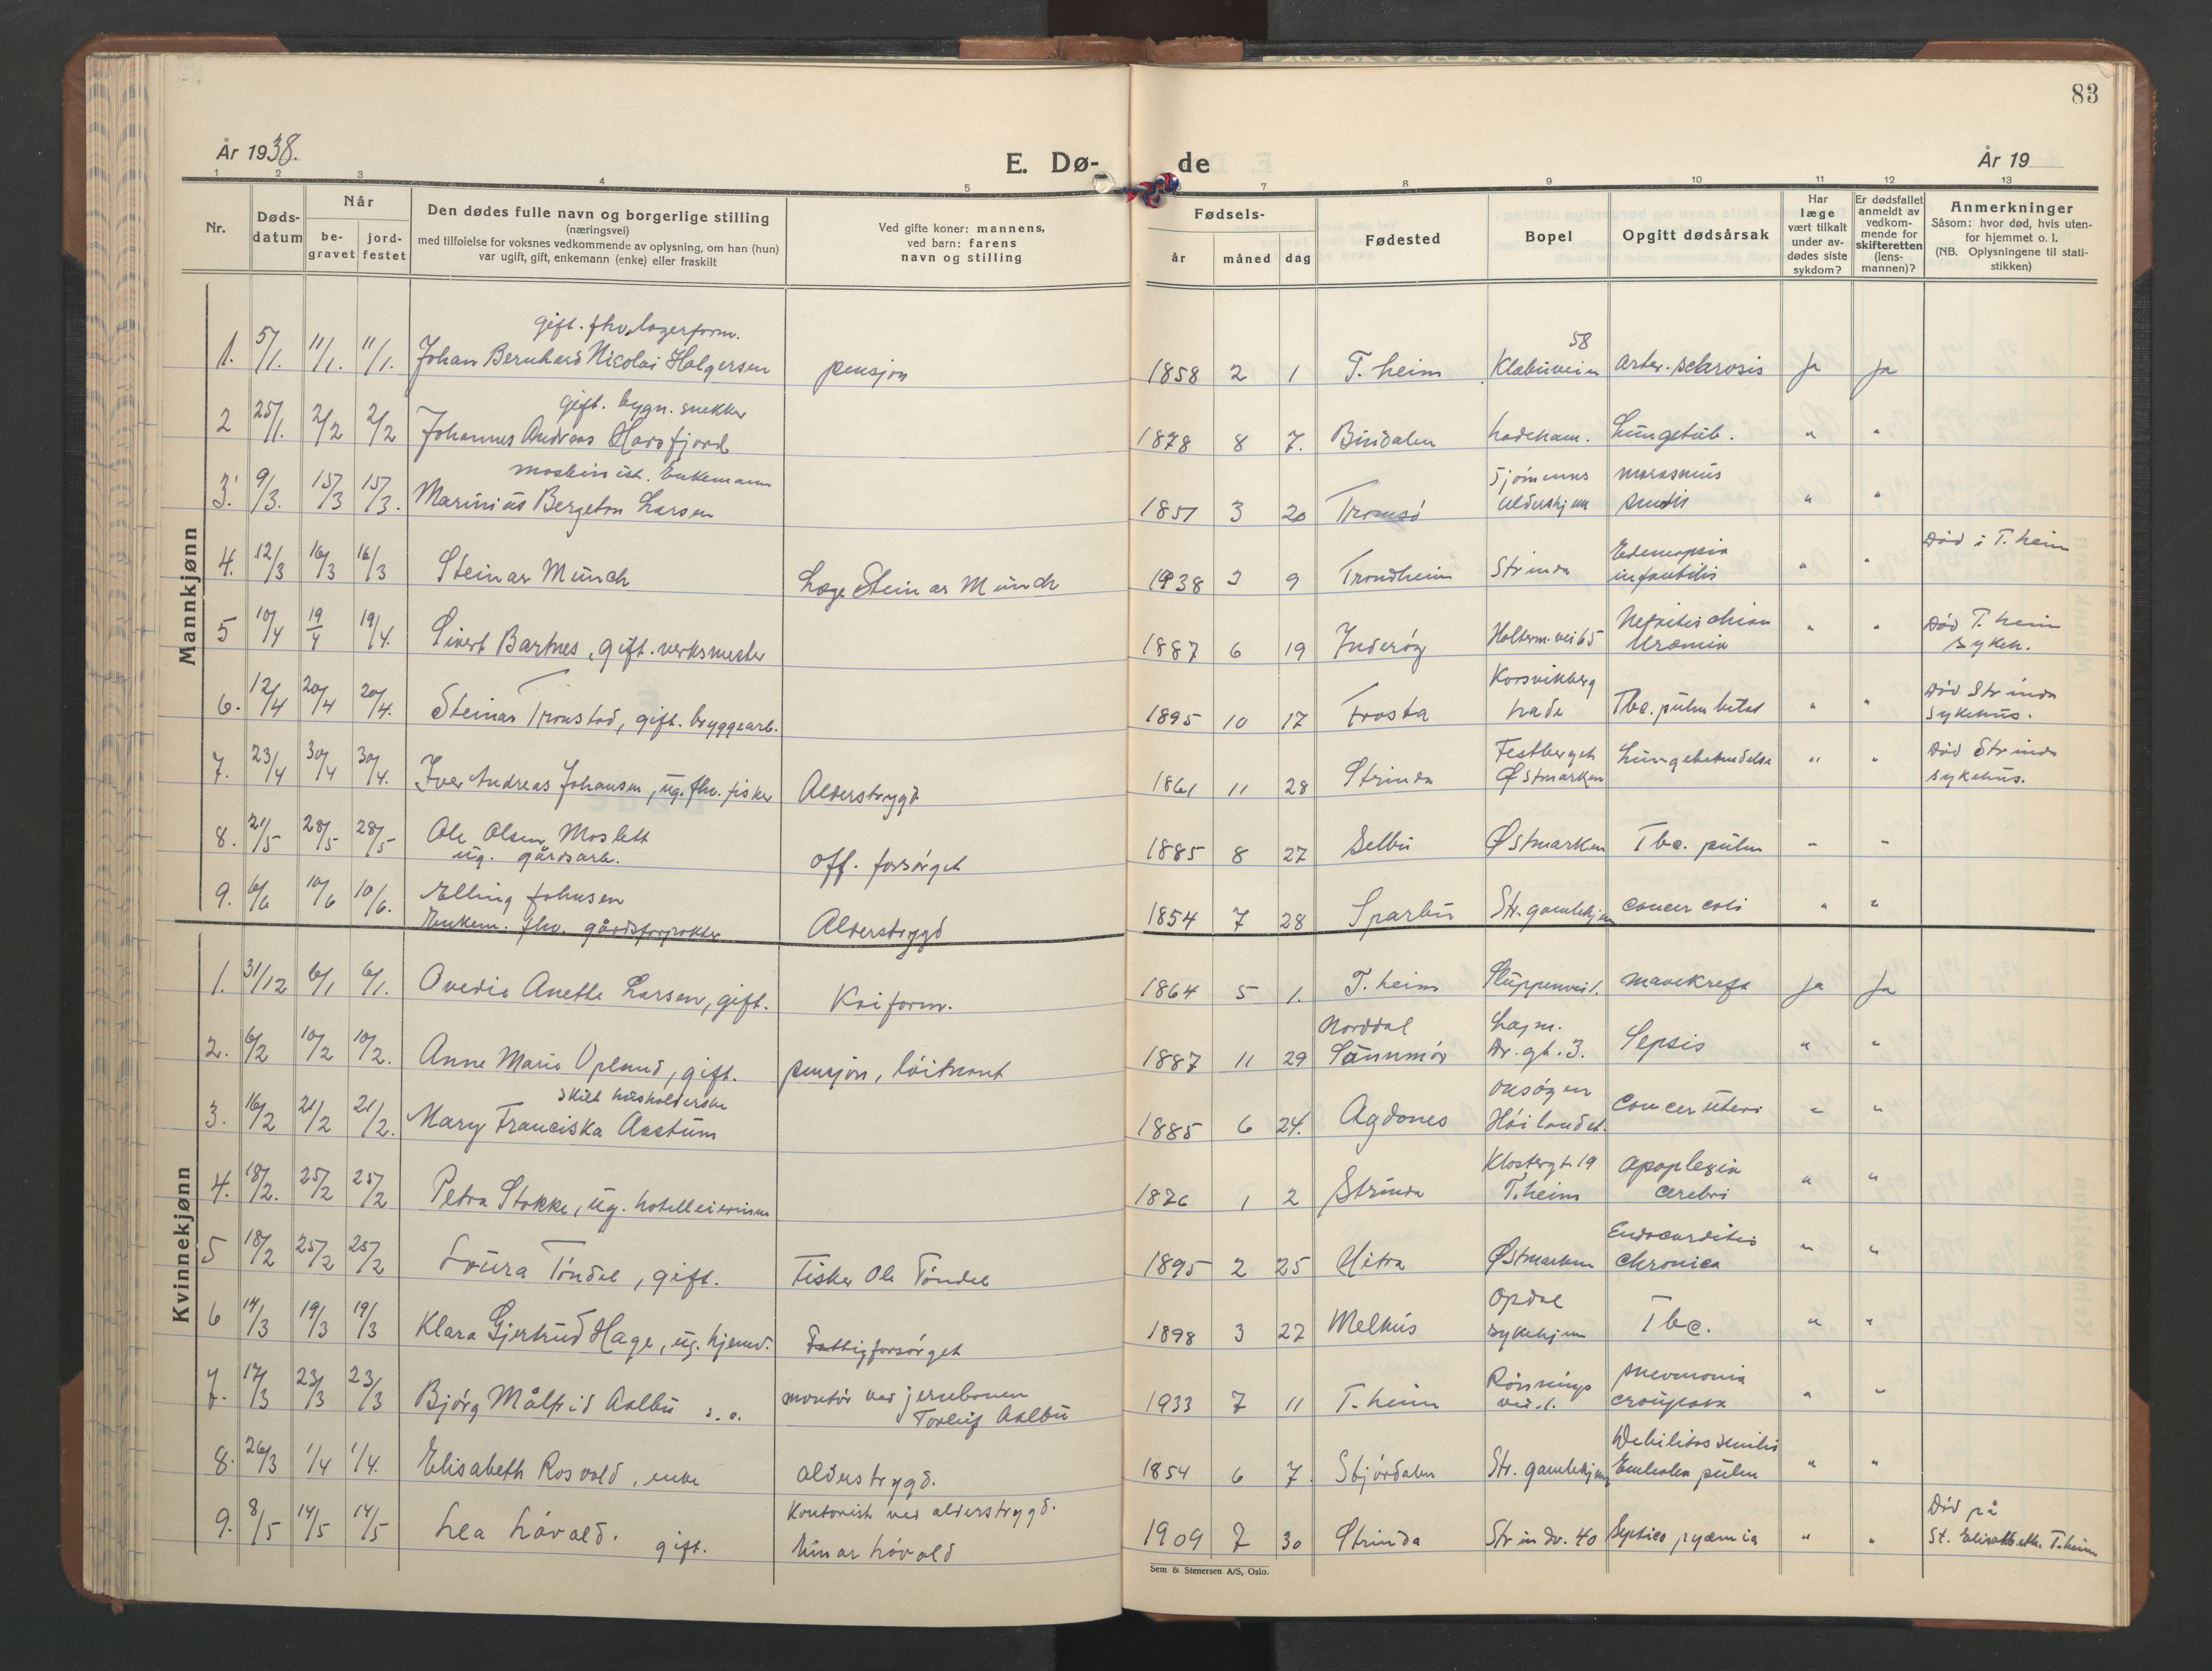 83
År 1938.
E. Dø-
de
År 19
1 2 3 4 5 7 8 9 10 11 12 13
Nr.
Døds-
datum
Når
be-
gravet
jord-
festet
Den dødes fulle navn og borgerlige stilling
(næringsvei)
med tilføielse for voksnes vedkommende av oplysning, om han (hun)
var ugift, gift, enkemann (enke) eller fraskilt
Ved gifte koner: mannens,
ved barn: farens
navn og stilling
Fødsels-
år måned dag
Fødested
Bopel
Opgitt dødsårsak
Har
læge
vært tilkalt
under av-
dødes siste
sykdom?
Er dødsfallet
anmeldt av
vedkom-
mende for
skifteretten
(lens-
mannen)?
Anmerkninger
Såsom: hvor død, hvis uten-
for hjemmet o. l.
(NB. Oplysningene til stati-
stikken)
Mannkjønn
gift. fhv. lagerform. 58
1. 5/1. 11/1. 11/1. Johan Bernhard Nicolai Holgersen pensjon 1858 2 1 T. heim Klæbuveien arter. sclerosis Ja Ja
gift. bygn. snekker
2 25/1. 2/2 2/2 Johannes Andreas Horsfjord 1878 8 7. Bindalen Ladeham. Lungetub. " "
maskinist. Enkemann Sjømennes marasmus
3. 9/3. 15/3 15/3. Marinius Bergeton Larsen 1851 3 20 Tromsø aldershjem senilis " "
Død i T. heim
4. 12/3 16/3 16/3 Steinar Münch Læge Steinar Münch 1938 3 9 Trondheim Strinda infantilis " "
5 10/4 19/4 19/4. Sivert Bartnes, gift. verksmester 1887 6 19 Inderøy Holterm. vei 65 Uræmia " " Død T. heim
sykeh.
Korsvikberg
6. 12/4 20/4 20/4. Steinar Tronstad, gift. bryggearb. 1895 10 17 Frosta Lade Tbc. pulm " " Død Strinda
sykehus.
Festberget
7. 23/4 30/4 30/4. Iver Andreas Johansen, ug. fhv. fisker Alderstrygd 1861 11 28 Strinda Østmarken Lungebetendelse " " Død Strinda
sykehus.
8. 21/5 28/5 28/5 Ole Olsen Moslett
ug. gårdsarb. off. forsørget 1885 8 27 Selbu Østmarken Tbc. pulm " "
9. 6/6 10/6 10/6. Elling Johnsen
Enkem. fhv. gårdsforpakter Alderstrygd 1854 7 28 Sparbu Str. gamlehjem cancer coli " "
Kvinnekjønn
1. 31/12 6/1 6/1. Ovedie Anette Larsen, gift. Kaiform. 1864 5 1. T. heim Sluppenvei 1. mavekreft Ja Ja
Norddal
2. 6/2 10/2 10/2. Anne Marie Opland, gift. pensjon, løitnant 1887 11 29 Sünnmør Dr. gt. 3. Sepsis " "
skilt husholderske
3. 16/2 21/2 21/2. Mary Franciska Aastum 1885 6 24. Agdenes Høilandet. cancer uteri " "
Klostergt 19 apoplexia
4. 18/2. 25/2 25/2 Petra Stokke, ug. hotelleierinne 1876 1 2 Strinda T.heim cerebri " "
Endocarditis
5 18/2 25/2 25/2 Laura Tøndel, gift. Fisker Ole Tøndel 1895 2 25 Hitra Østmarken chronica " "
Opdal
6 14/3 19/3 19/3 Klara Gjertrud Hage, ug. hjemv. Fattigforsørget 1898 3 22 Melhus sykehjem Tbc. " "
Rønnings pneumonia
7. 17/3 23/3 23/3 Bjørg Målfrid Aalbu montør ved jernbanen
Torleif Aalbu 1933 7 11 T. heim vei. 1. crouposa " "
Debilitas senilis
8. 26/3 1/4 1/4. Elisabeth Rosvold, enke alderstrygd. 1854 6 7. Stjørdalen Str. gamlehjem Embolia pulm " "
Kontorist ved alderstrygd.
9. 8/5 14/5 14/5 Lea Løvold. gift. Einar Løvold 1909 7 30 Strinda Strindv. 40 Septico pyæmia " " Død på
St. Elisabeth. T.heim
Sem & Stenersen A/S, Oslo.